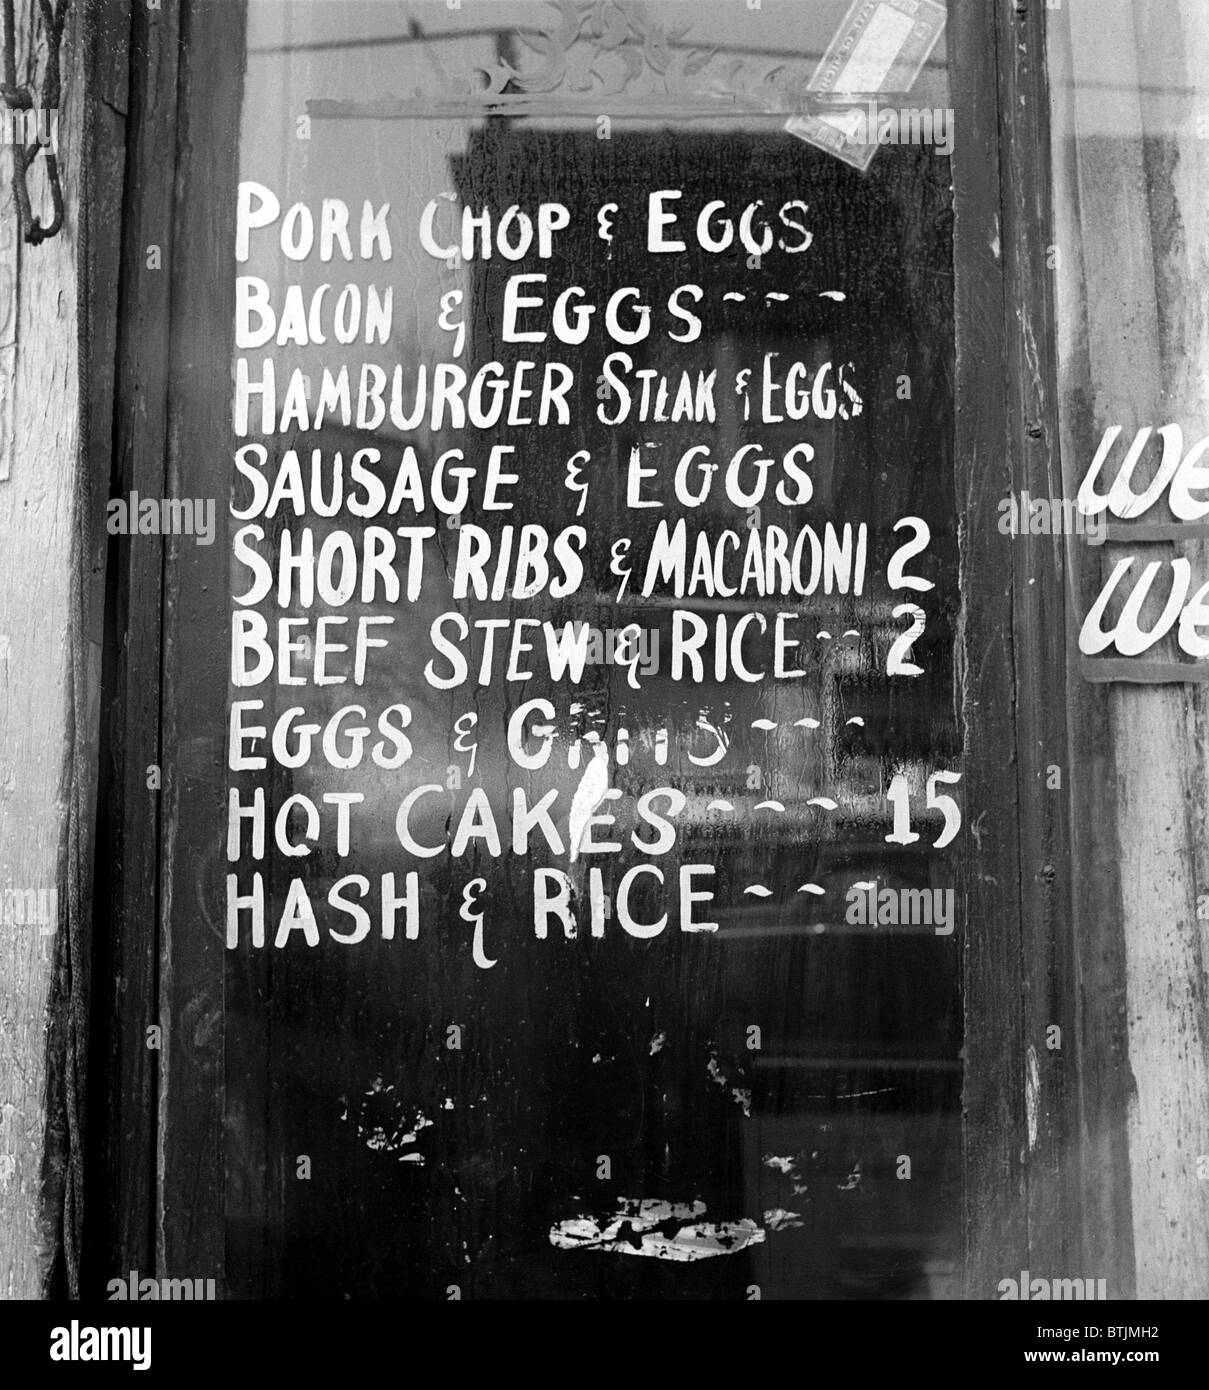 PORK CHOP & EGGS
BACON & EGGS ~ ~ ~
HAMBURGER STEAK & EGGS
SAUSAGE & EGGS
SHORT RIBS & MACARONI 2
BEEF STEW & RICE ~ ~ 2
EGGS & GRITS ~ ~ ~
HOT CAKES ~ ~ ~ 15
HASH & RICE ~ ~ ~
We
We
alamy
alamy
Image ID: BTJMH2
www.alamy.com